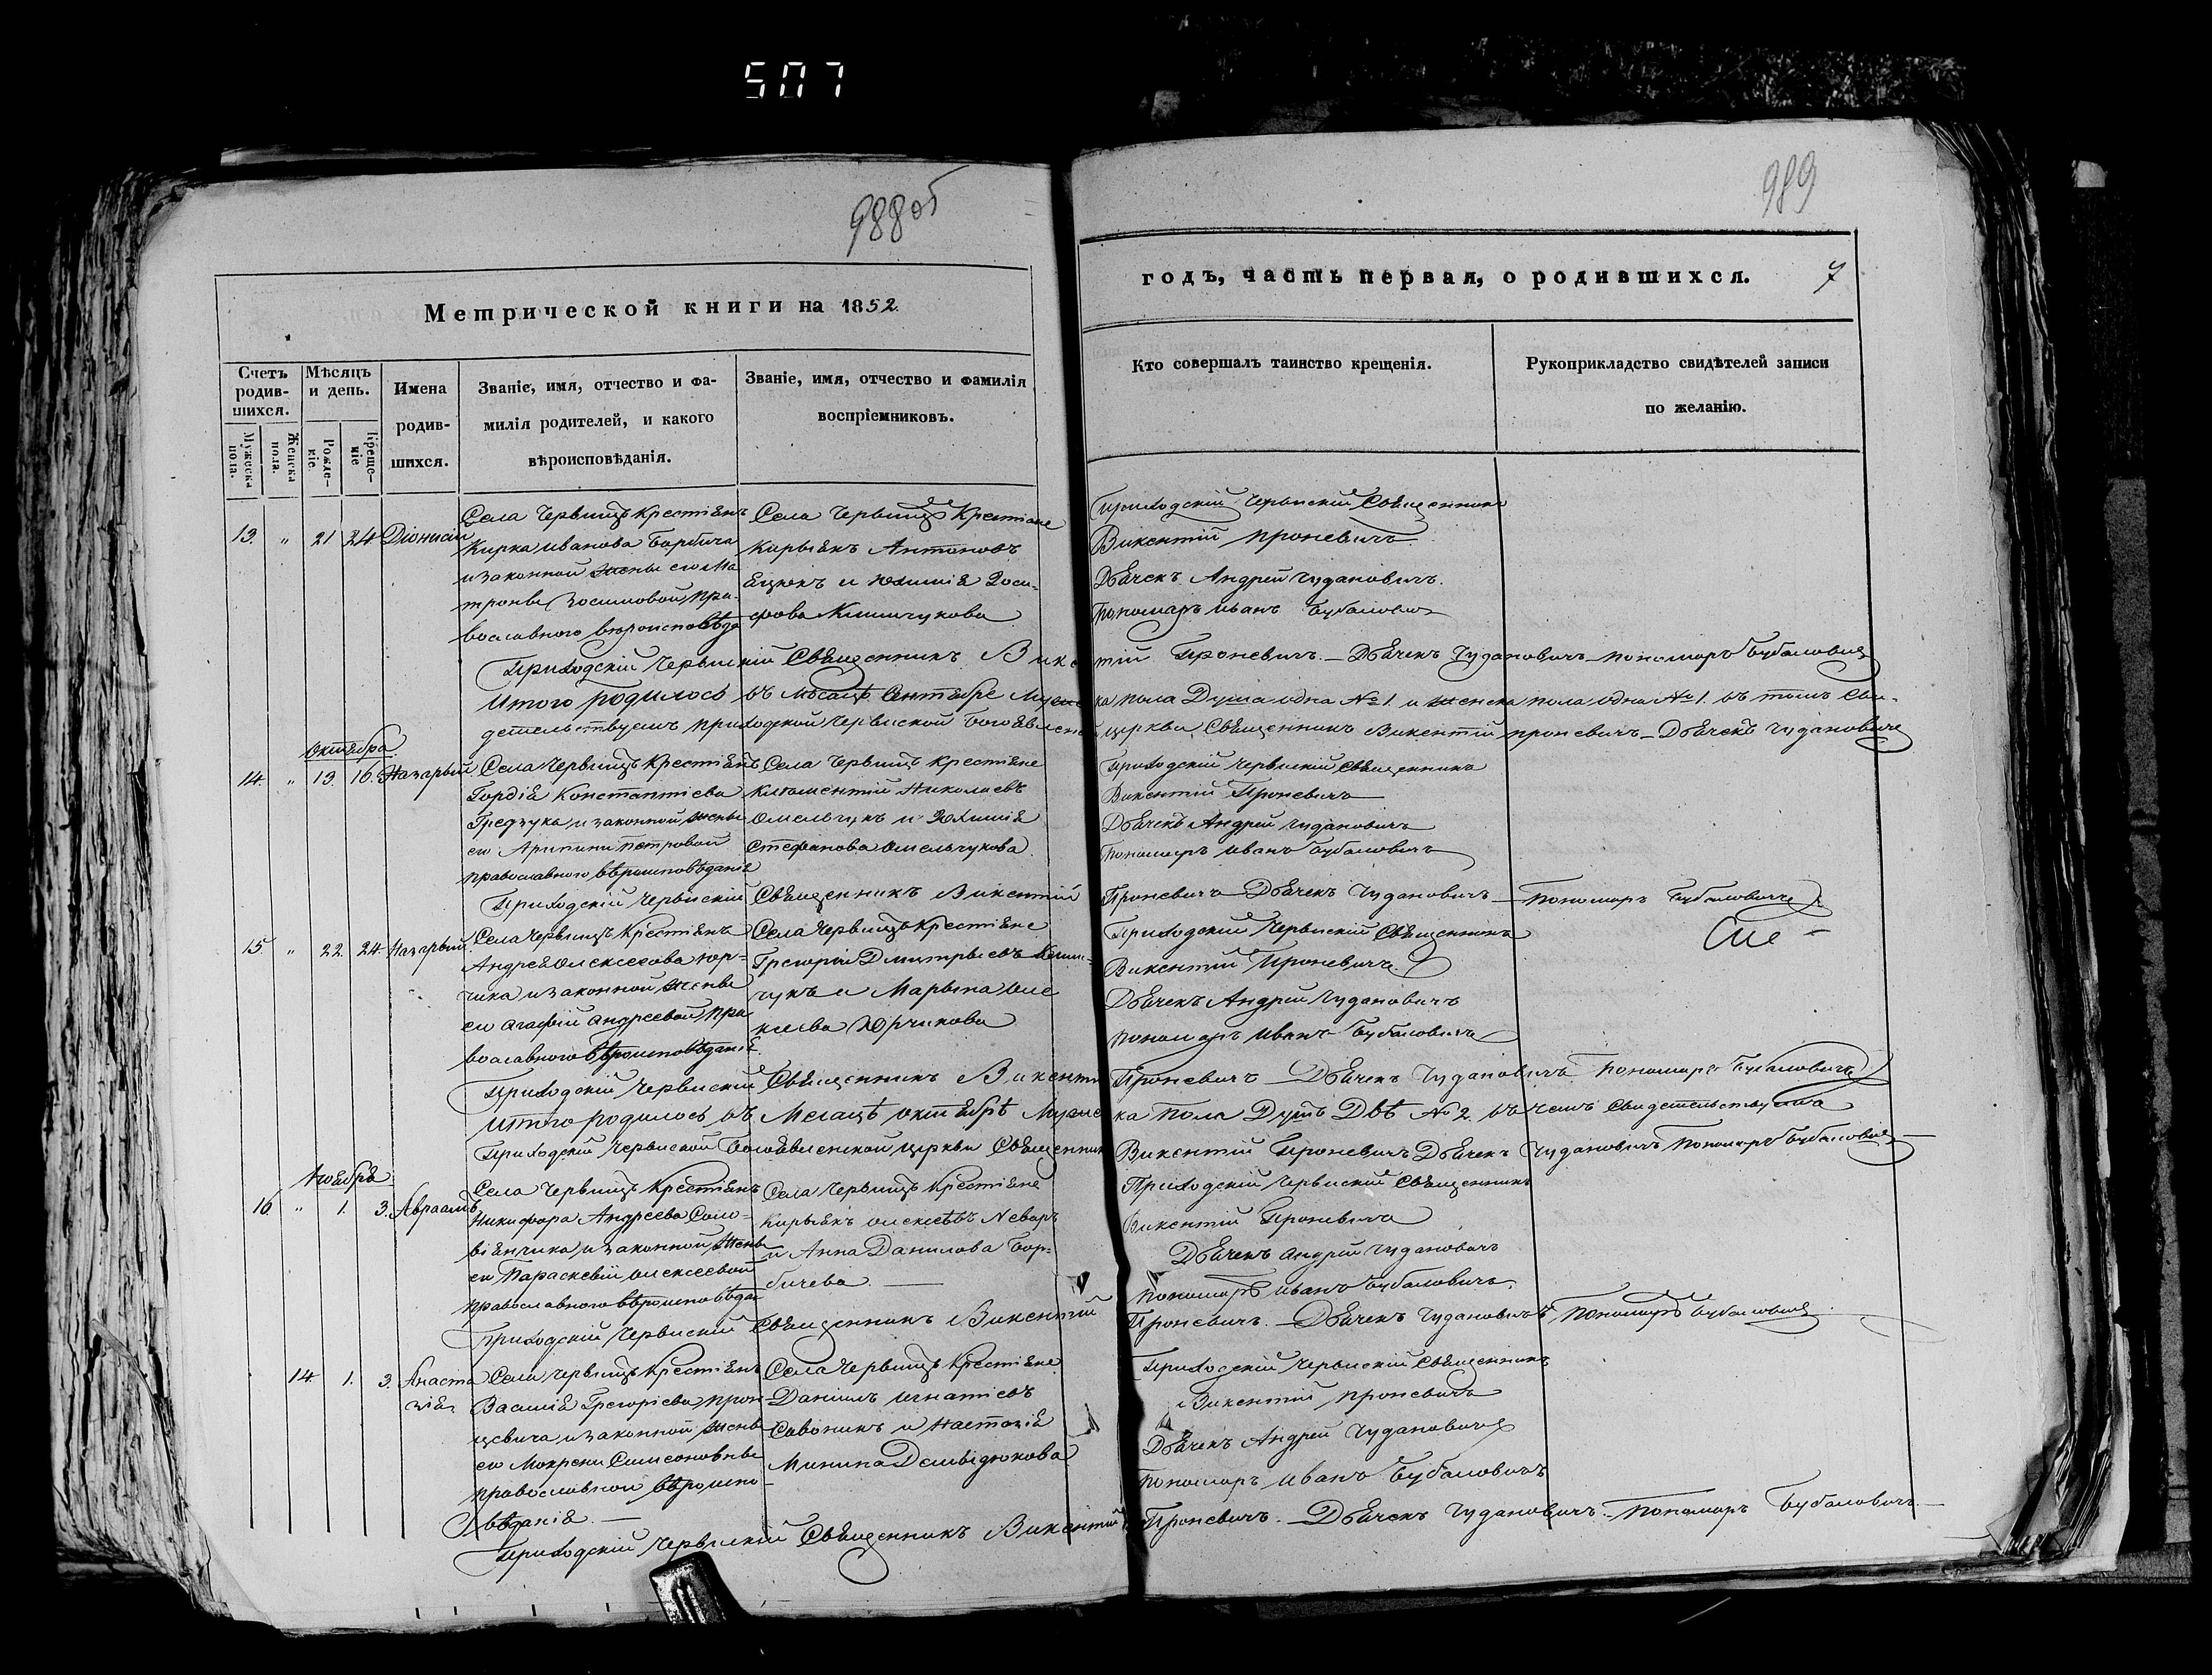 507
988об
989
Метрической книги на 1852.
годъ, часть первая, о родившихся. 7
Счетъ родив-шихся.
Мужеска пола.
Женска пола.
Мѣсяцъ и день.
Рожде-ніе.
Креще-ніе
Имена
родив-
шихся.
Званіе, имя, отчество и фа-
милія родителей, и какого
вѣроисповѣданія.
Званіе, имя, отчество и фамилія
воспріемниковъ.
Кто совершалъ таинство крещенія.
Рукоприкладство свидѣтелей записи
по желанію.
13. " 21 24 Діонисій
Села Червищъ крестьянъ
Кирка Иванова Барбича
и законной жены его Ма
троны Зосимовой, пра-
вославного вѣроисповѣда
Села Червищъ Крестіане
Кирыякъ Антоновъ
и Юхимія
Климчукова
Приходскій Червискій Священникъ
Викентій Проневичъ.
Дьячекъ Андрей Чудановичъ.
Пономаръ Иванъ Бубаловичъ
Приходскій Червискій Священникъ Викентій Проневичъ.— Дьячекъ Чудановичъ— пономаръ Бубаловичъ
Итого родилось въ мѣсацѣ Сентябре Мужеска пола Душа одна №1 и женска пола одна №1. въ томъ Сви-
детельствуемъ приходской Червиской Богоявленской церкви Священникъ Викентій Проневичъ— Дьячекъ Чудановичъ
Октября
14. " 13. 16. Назарый
Села Червищъ Крестіянъ
Гордія Константіева
и законной жены
его Арипини Петровой
православного вѣроисповѣданія
Села Червищъ крестіяне
Климентій Николаевъ
Омельчукъ и Юхимія
Стефанова Омельчукова
Приходскій Червискій Священникъ
Викентій Проневичъ
Дьячекъ Андрей Чудановичъ
Пономаръ Иванъ Бубаловичъ
Приходскій Червискій Священникъ Викентій Проневичъ— Дьячекъ Чудановичъ— Пономаръ Бубаловичъ
15. " 22. 24. Назарый
Села Червищъ Крестіянъ
Андрея Олексеева Юр-
чика и законной жены
его Агафіи Андреевой, пра
вославного вѣроисповѣданія
Села Червищъ Крестіяне
Грегорій Дмитрыевъ Клим-
чукъ и Марына Оле
ксеева Юрчикова
Приходскій Червискій Священникъ
Викентій Проневичъ.
Дьячекъ Андрей Чудановичъ
пономаръ Иванъ Бубаловичъ
Приходскій Червискій Священникъ Викентій Проневичъ— Дьячекъ Чудановичъ. Пономаръ Бубаловичъ
Итого родилось въ Месацѣ октябрѣ Мужеска пола Душъ Двѣ №2. въ чемъ свидетельствуемъ
Приходскій Червиской Богоявленской церкви Священникъ Викентій Проневичъ Дьячекъ Чудановичъ Пономаръ Бубаловичъ
Ноября
16. " 1. 3. Авраамъ
Села Червищъ Крестіянъ
Никифора Андреева Соло-
віянчика и законной жены
его Параскевіи Олексеевой
православного вѣроисповѣдан
Села Червищъ Крестіяне
Кирыякъ Олексѣевъ
и Анна Данилова Бор-
бичева.
Приходскій Червискій Священникъ
Викентій Проневичъ
Дьячекъ Андрей Чудановичъ
пономаръ Иванъ Бубаловичъ.
Приходскій Червискій Священникъ Викентій Проневичъ.— Дьячекъ Чудановичъ Пономаръ Бубаловичъ
14. 1. 3. Анаста
зія.
Села Червищъ Крестіянъ
Василія Грегоріева Прон
цевича и законной жены
его Мокрени Самсоновны
православной вѣроиспо-
вѣданія.—
Села Червищъ Крестіяне
Даніилъ Игнатіевъ
Савоникъ и Настазія
Минина Демвідюкова
Приходскій Червискій Священникъ
Викентій Проневичъ
Дьячекъ Андрей Чудановичъ
пономаръ Иванъ Бубаловичъ
Приходскій Червискій Священникъ Викентій Проневичъ.— Дьячекъ Чудановичъ. Пономаръ Бубаловичъ.—